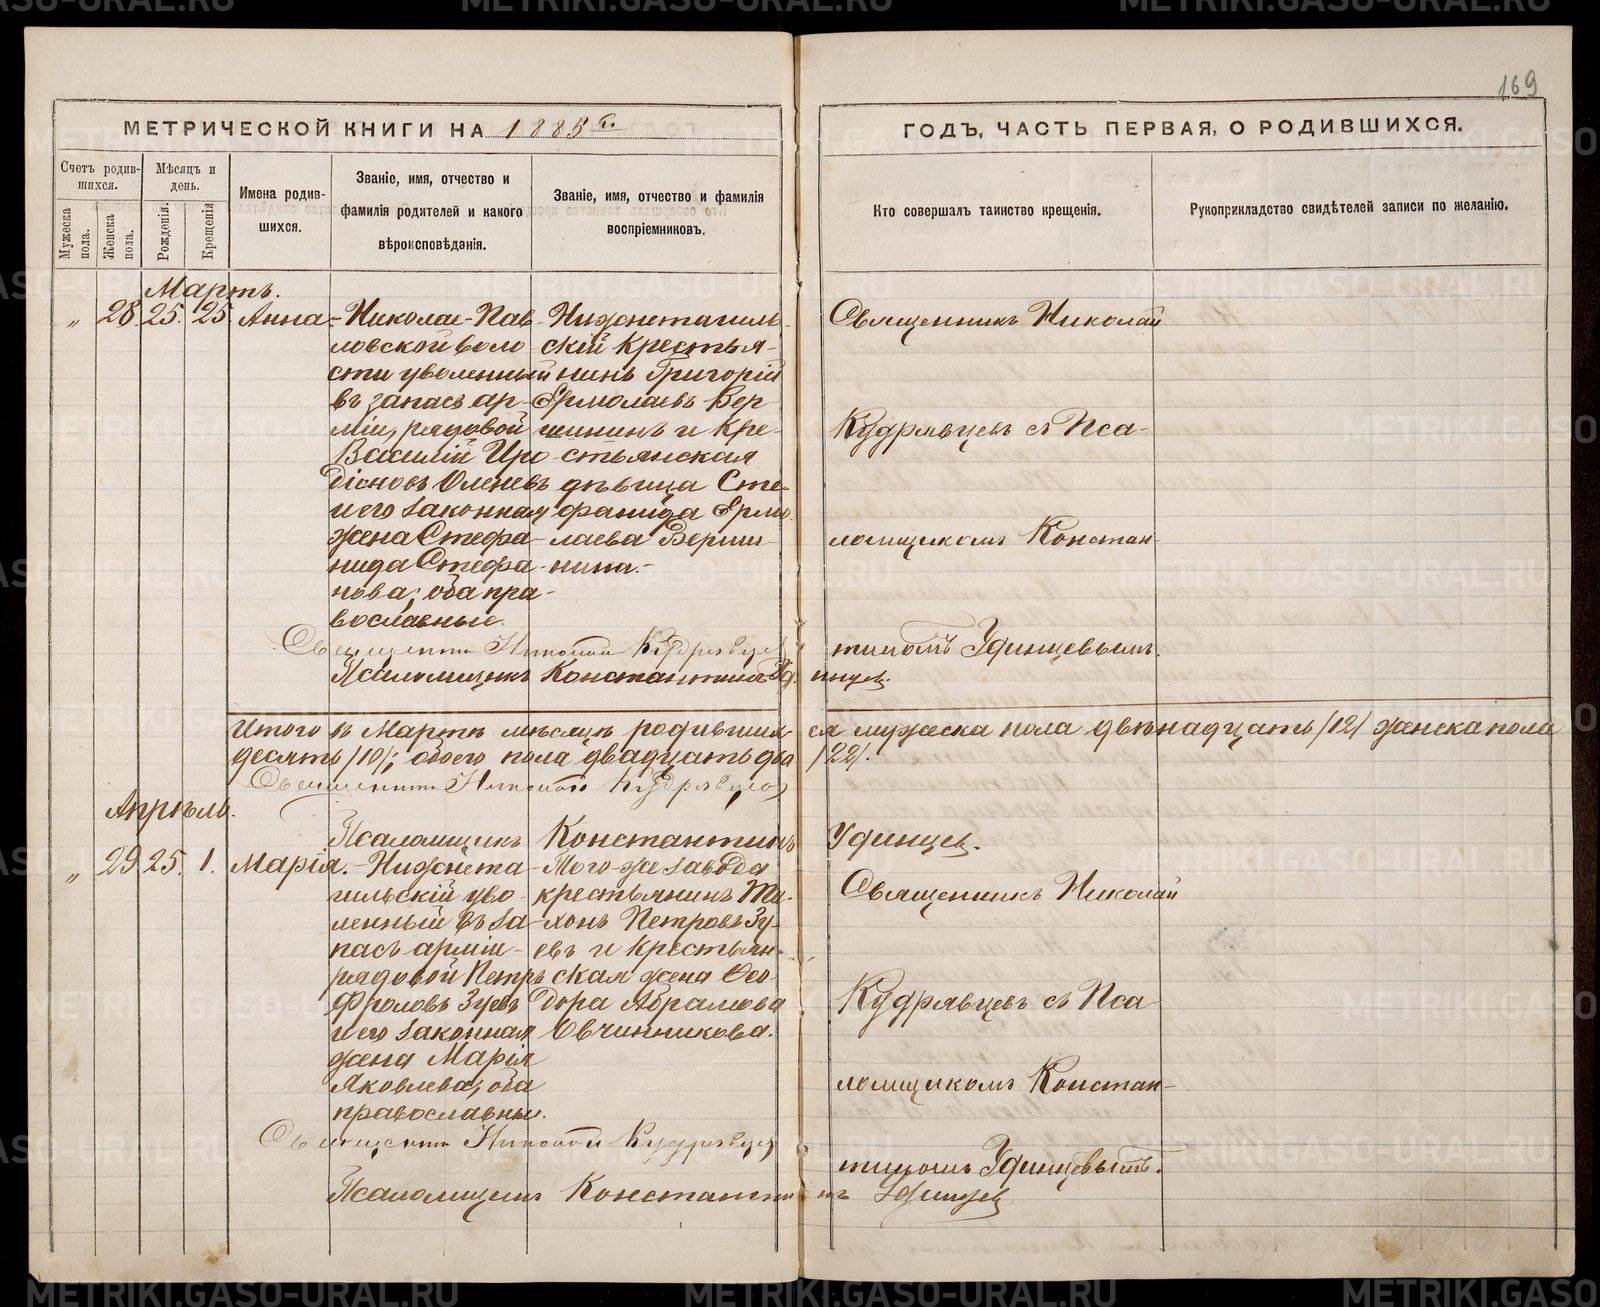 169
МЕТРИЧЕСКОЙ КНИГИ НА 1885й
ГОДЪ, ЧАСТЬ ПЕРВАЯ, О РОДИВШИХСЯ.
Счетъ родив-
шихся.
Мѣсяцъ и
день.
Мужеска
пола.
Женска
пола.
Рожденія.
Крещенія
Имена родив-
шихся.
Званіе, имя, отчество и
фамилія родителей и какого
вѣроисповѣданія.
Званіе, имя, отчество и фамилія
воспріемниковъ.
Кто совершалъ таинство крещенія.
Рукоприкладство свидѣтелей записи по желанію.
Мартъ.
„ 28. 25. 25. Анна.
Николае-Пав
ловской воло
сти уволенный
въ запасъ ар-
міи, рядовой
Василій Иро
діоновъ Оленевъ
и его законная
жена Стефа-
нида Стефа-
нова; оба пра-
вославные.
Нижнетагиль-
скій крестья-
нинъ Григорій
Ермолаевъ Вер-
шининъ и кре-
стьянская
дѣвица Сте-
фанида Ермо-
лаева Верши-
нина.-
Священникъ Николай
Кудрявцевъ съ Пса-
ломщикомъ Констан-
тиномъ Удинцевымъ.
Священникъ Николай Кудрявцев
Псаломщикъ Константинъ Удинцев.
Итого въ Мартѣ мѣсяцѣ родившихся мужеска пола двѣнадцать /12/ женска пола
десять /10/; обоего пола двадцать два /22/.
Священникъ Николай Кудрявцев
Апрѣль.
Псаломщикъ Константинъ Удинцев.
„ 29. 25. 1. Марія.
Нижнета
гильскій уво-
ленный въ за-
пасъ арміи-
рядовой Петръ
Фроловъ Зуевъ
и его законная
жена Марія
Яковлева; оба
православные.
Того-же завода
крестьянинъ
Петровъ Зу-
евъ и крестьян-
ская жена Ѳео
дора Абрамова
Овчинникова.
Священникъ Николай
Кудрявцевъ съ Пса
ломщикомъ Констан-
тиномъ Удинцевымъ.
Священникъ Николай Кудрявцев
Псаломщикъ Константинъ Удинцев
METRIKI.GASO-URAL.RU